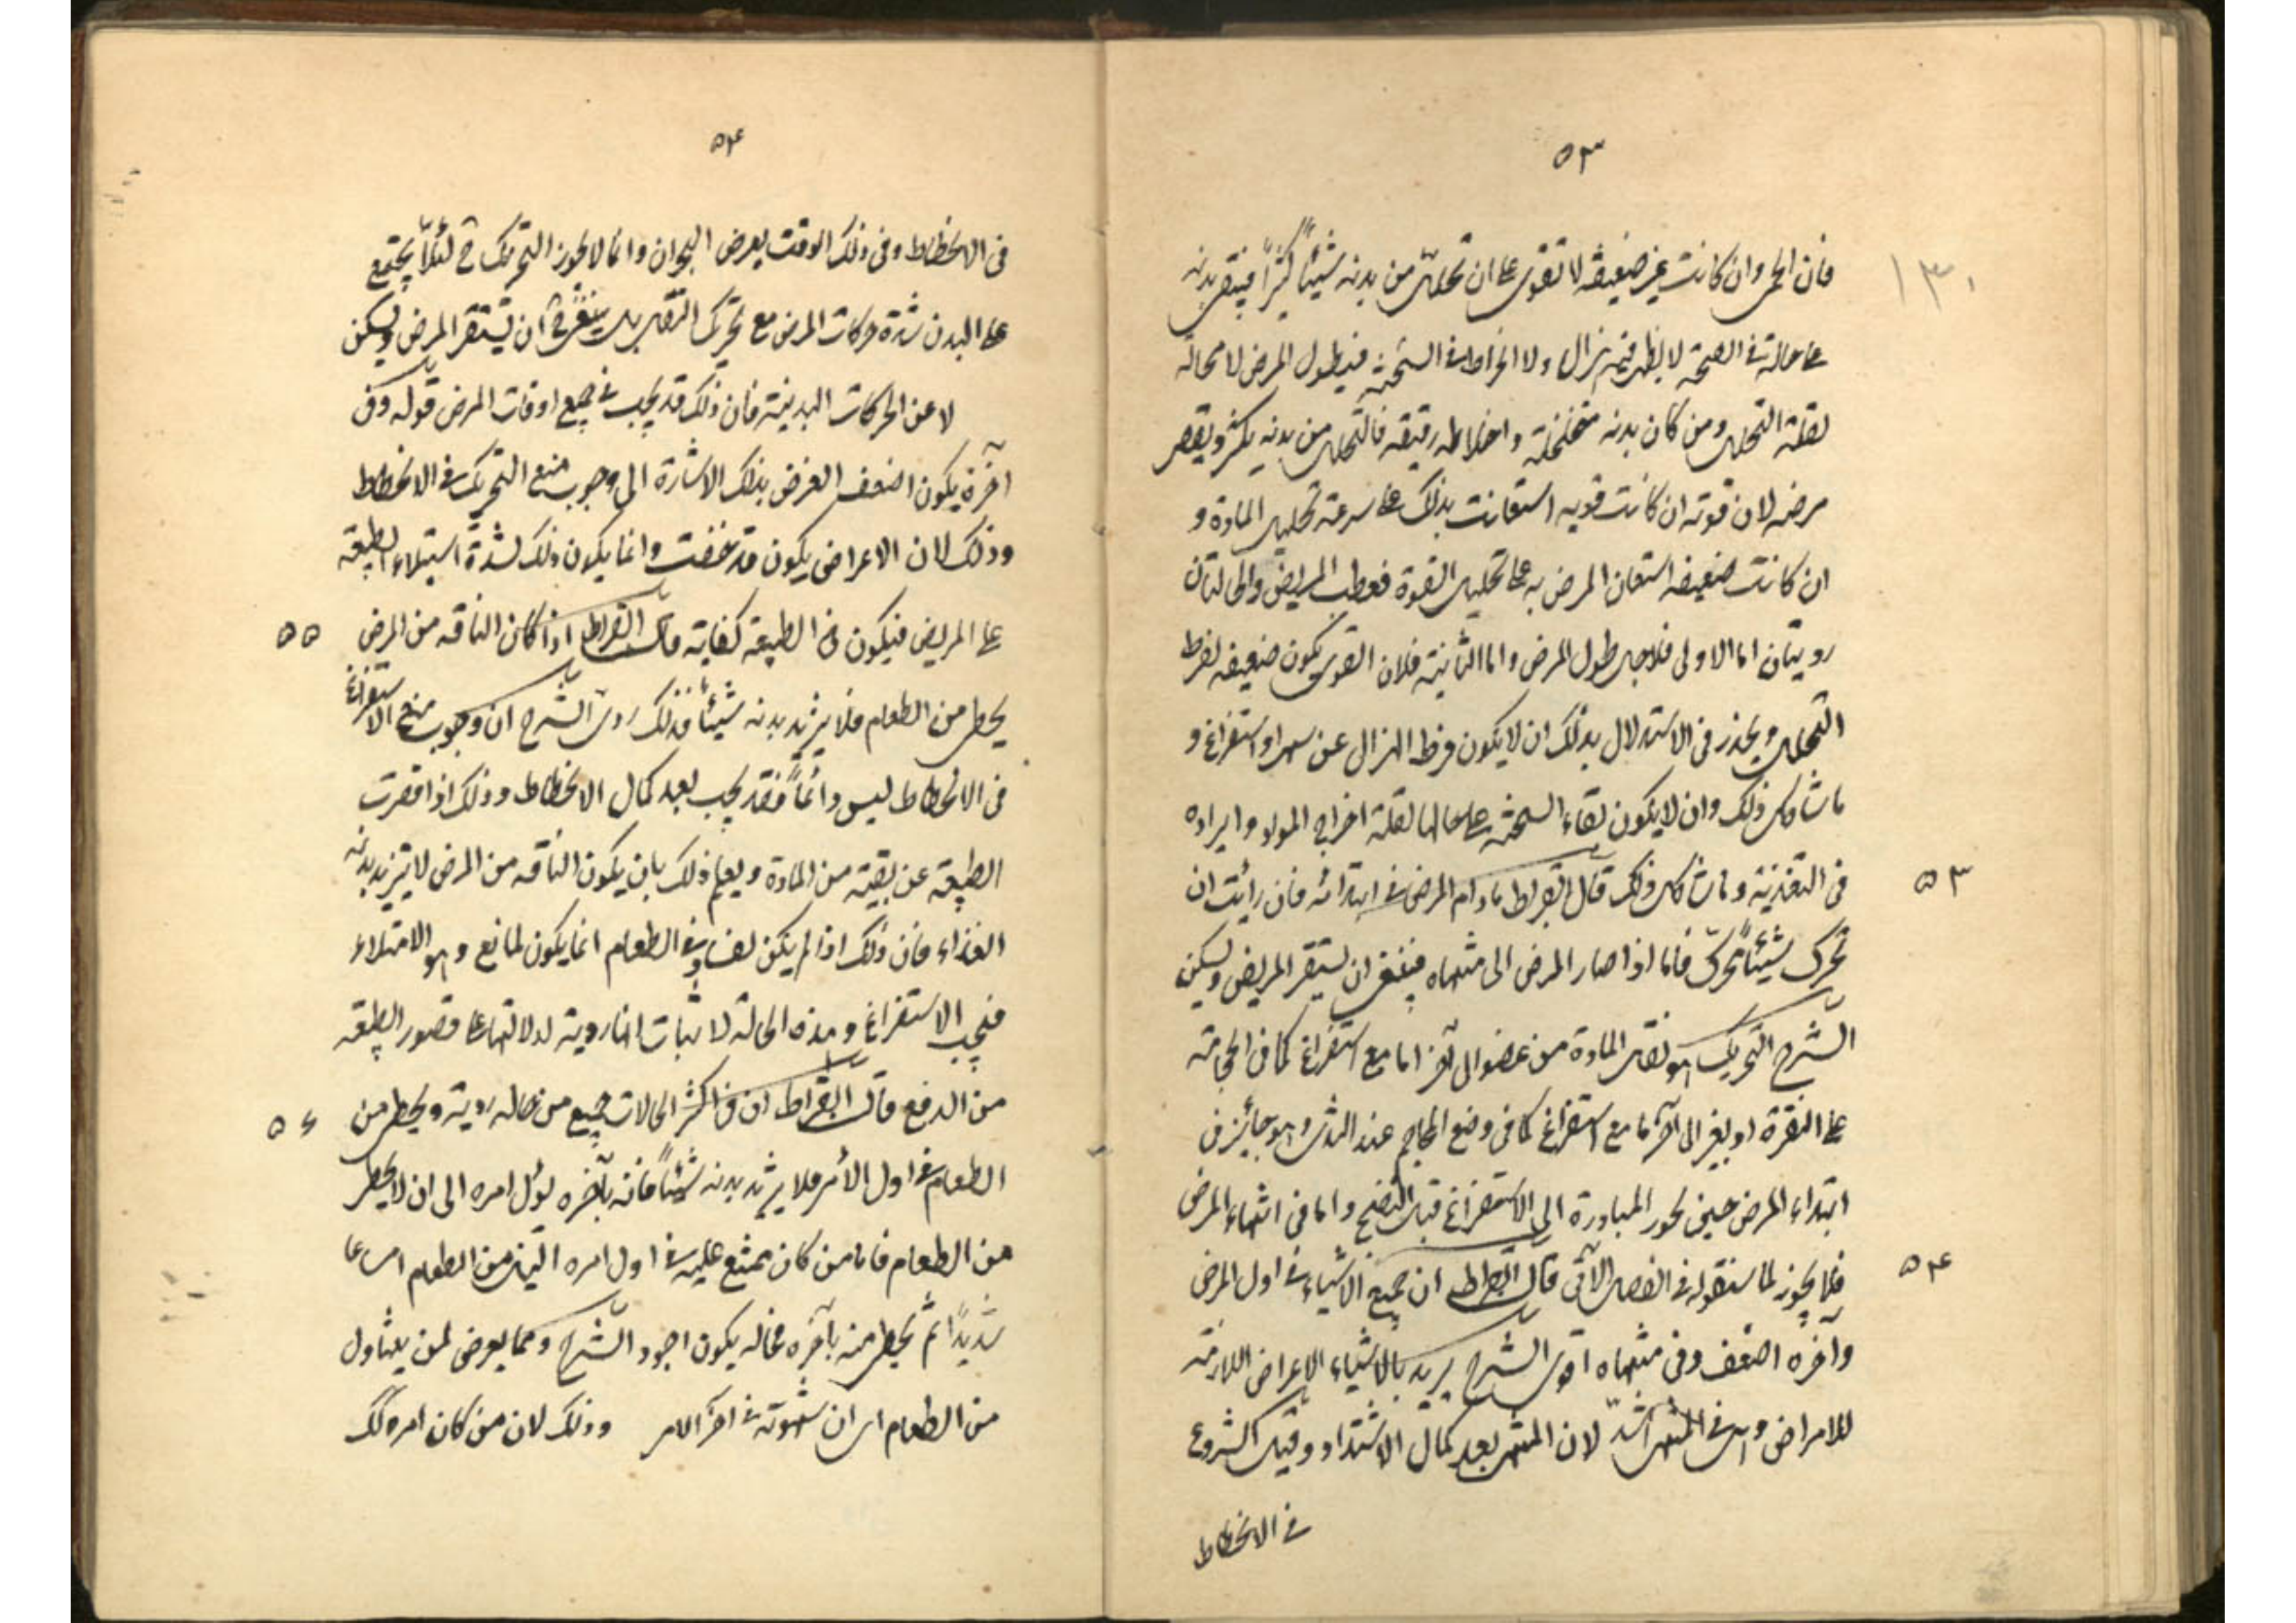 ٥٣
١٣٠
فان الحمى وان كانت غير ضعيفه لا تقوى على ان تحلل من بدنه شيئاً كثيراً فيبقى بدنه
على حالة فى الصحة لا يظهر فيه هزال ولا انخراط فى السحنة فيطول المرض لا محالة
لقلة التحلل ومن كان بدنه متخلخلة واخلاطه رقيقه فالتحلل من بدنه يكثر ويقصر
مرضه لان قوته ان كانت قويه استعانت بذلك على سرعة تحليل المادة و
ان كانت ضعيفه استعان المرض به على تحليل القوة فعطب المريض والحالتان
رويتان اما الاولى فلاجل طول المرض واما الثانية فلان القوى يكون ضعيفه لفرط
التحلل ويحذر فى الاستدلال بذلك ان لا يكون فرط الهزال عن سهر او استفراغ و
ماشاكل ذلك وان لا يكون بقاء السحنة على حالها لقلة اخراج المواد وايراده
فى التغذية وماشاكل ذلك قال ابقراط مادام المرض فى ابتدائه فان رأيت ان
٥٣
تحرك شيئاً فحرك فاما اذا صار المرض الى منتهاه فينبغى ان يستقر المريض ويسكن
الشرح التحريك هو نقل المادة من عضو الى آخر اما مع استفراغ كما فى الحجامة
على النقرة او بغير الى آخر ما مع استفراغ كما فى وضع المحاجم عند الثدى وهو جائز فى
ابتداء المرض حينئ يجوز المبادرة الى الاستفراغ قبل النضج واما فى انتهاء المرض
فلا يجوز لما سنقوله فى الفصل الآتى قال ابقراط ان جميع الاشياء فى اول المرض
٥٤
واخره اضعف وفى منتهاه اقوى الشرح يريد بالاشياء الاعراض اللازمة
للامراض وهى فى المنتهى اشدّ لان المنتهى بعد كمال الاشتداد وقبل الشروع
فى الانحطاط
٥٤
فى الانحطاط وفى ذلك الوقت يعرض البحران وانما لا يجوز التحريك ح لئلّا يجتمع
على البدن شدة حركات المرض مع تحريك النقل بل ينبغى ح ان يستقر المرض ويسكن
لا عن الحركات البدنية فان ذلك قد يجب فى جميع اوقات المرض قوله وفى
آخرة يكون اضعف الغرض بذلك الاشارة الى وجوب منع التحريك فى الانحطاط
وذلك لان الاعراض يكون قد خفت وانما يكون ذلك لشدة استيلاء الطبيعة
على المريض فيكون فى الطبيعة كفاية قال ابقراط اذا كان الناقه من المرض
٥٥
يحظى من الطعام فلا يزيد بدنه شيئاً فذلك ردى الشرح ان وجوب منع الاستفراغ
فى الانحطاط ليس دائماً فقد يجب بعد كمال الانحطاط وذلك اذا قصرت
الطبيعة عن بقية من المادة ويعلم ذلك بان يكون الناقه من المرض لا يتزيد بدنه
الغذاء فان ذلك اذا لم يكن لفساد فى الطعام انما يكون لمانع وهو الامتلاء
فيجب الاستفراغ وهذه الحالة لا ثبات انها ردية لدلالتها على قصور الطبيعة
من الدفع قال ابقراط ان فى اكثر الحالات جميع من حاله ردية ويحظى من
٥٦
الطعام فى اول الأمر فلا يزيد بدنه شيئاً فانه بآخره يؤل امره الى ان لا يحظى
من الطعام فاما من كان يمتنع عليه فى اول امره النيل من الطعام امتناعا
شديداً ثم يحظى منه بآخره فحاله يكون اجود الشرح ومما يعرض لمن يتناول
من الطعام اى ان شهوته فى آخر الامر وذلك لان من كان امره لك